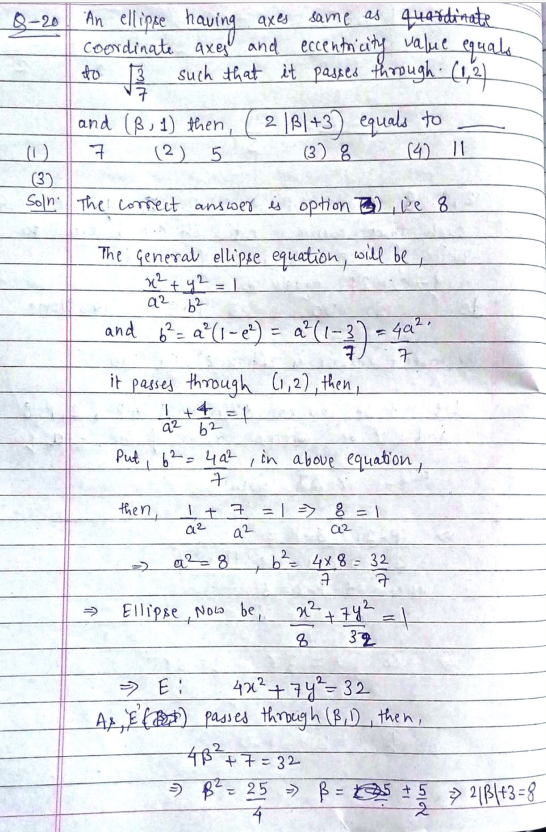 Q-20 An ellipse having axes same as quardinate
coordinate axes and eccentricity value equals
to √3/7 such that it passes through (1,2)
and (β,1) then, (2|β|+3) equals to ___
(1) 7 (2) 5 (3) 8 (4) 11
(3)
Soln. The correct answer is option 3), i.e 8
The general ellipse equation, will be,
x²/a² + y²/b² = 1
and b² = a²(1-e²) = a²(1-3/7) = 4a²/7.
it passes through (1,2), then,
1/a² + 4/b² = 1
Put, b² = 4a²/7, in above equation,
then, 1/a² + 7/a² = 1 ⇒ 8/a² = 1
⇒ a² = 8, b² = 4×8/7 = 32/7
⇒ Ellipse, Now be, x²/8 + 7y²/32 = 1
⇒ E: 4x² + 7y² = 32
As, 'E' passes through (β,1), then,
4β² + 7 = 32
⇒ β² = 25/4 ⇒ β = ± 5/2 ⇒ 2|β|+3=8